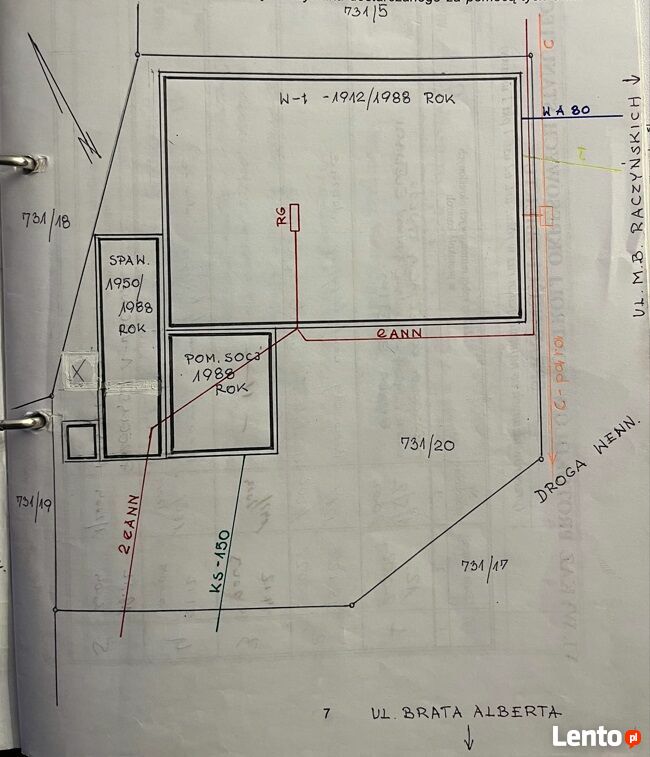 731/5
C
W-t -1912/1988 ROK
WA 80
UL. M.B. RACZYŃSKICH
731/18
RG
SPAW.
1950/
1988
ROK
eANN
POM. SOCJ
1988
ROK
X
C-para
731/20
DROGA WEWN.
731/19
2eANN
KS-150
731/17
7
UL. BRATA ALBERTA
Lento.pl